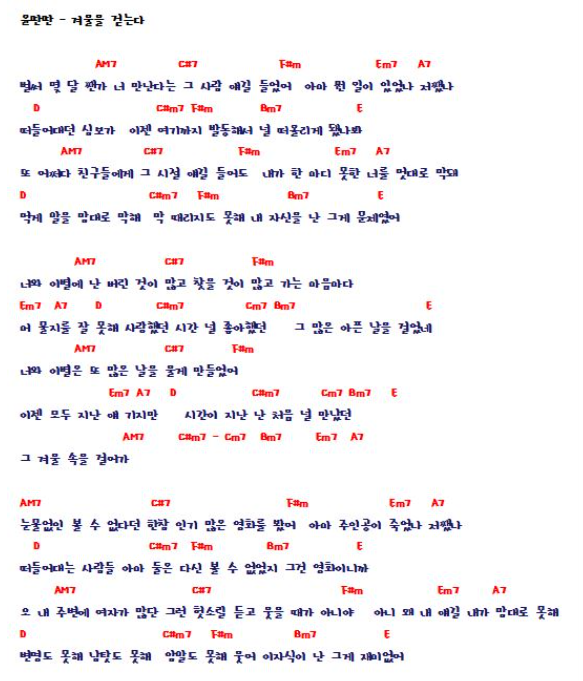 윤딴딴 - 겨울을 걷는다
AM7 C#7 F#m Em7 A7
벌써 몇 달 짼가 너 만난다는 그 사람 얘길 들었어 아마 뭔 일이 있었나 저쨌나
D C#m7 F#m Bm7 E
떠들어대던 심보가 이젠 여기까지 발동해서 널 떠올리게 됐나봐
AM7 C#7 F#m Em7 A7
또 어쩌다 친구들에게 그 시절 얘길 들어도 내가 한 마디 못한 너를 멋대로 막돼
D C#m7 F#m Bm7 E
먹게 말을 맘대로 막해 막 때리지도 못해 내 자신을 난 그게 문제였어
AM7 C#7 F#m
너와 이별에 난 버린 것이 많고 찾을 것이 많고 가는 마음마다
Em7 A7 D C#m7 Cm7 Bm7 E
머물지를 잘 못해 사랑했던 시간 널 좋아했던 그 많은 아픈 날을 걸었네
AM7 C#7 F#m
너와 이별은 또 많은 날을 울게 만들었어
Em7 A7 D C#m7 Cm7 Bm7 E
이젠 모두 지난 얘 기지만 시간이 지난 난 처음 널 만났던
AM7 C#m7 - Cm7 Bm7 Em7 A7
그 겨울 속을 걸어가
AM7 C#7 F#m Em7 A7
눈물없인 볼 수 없다던 한참 인기 많은 영화를 봤어 아마 주인공이 죽었나 저쨌나
D C#m7 F#m Bm7 E
떠들어대는 사람들 아마 둘은 다신 볼 수 없었지 그건 영화이니까
AM7 C#7 F#m Em7 A7
오 내 주변에 여자가 많단 그런 헛소릴 듣고 웃을 때가 아니야 아니 왜 내 얘길 내가 맘대로 못해
D C#m7 F#m Bm7 E
변명도 못해 남탓도 못해 암말도 못해 웃어 이자식이 난 그게 재미없어